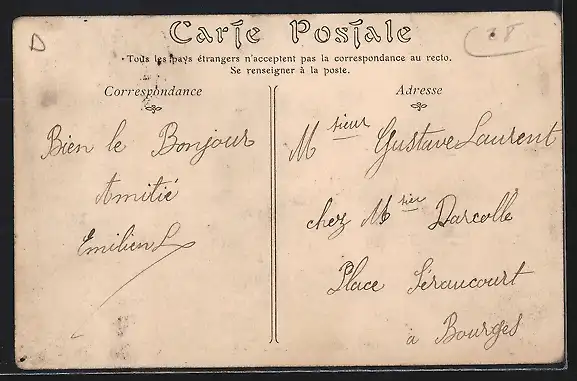 D
Carte Postale
28
• Tous les pays étrangers n'acceptent pas la correspondance au recto.
Se renseigner à la poste.
Correspondance
Bien le Bonjour
Amitié
Emilien L
Adresse
Msieur Gustave Laurent
chez Msieu Darcolle
Place Séraucourt
à Bourges